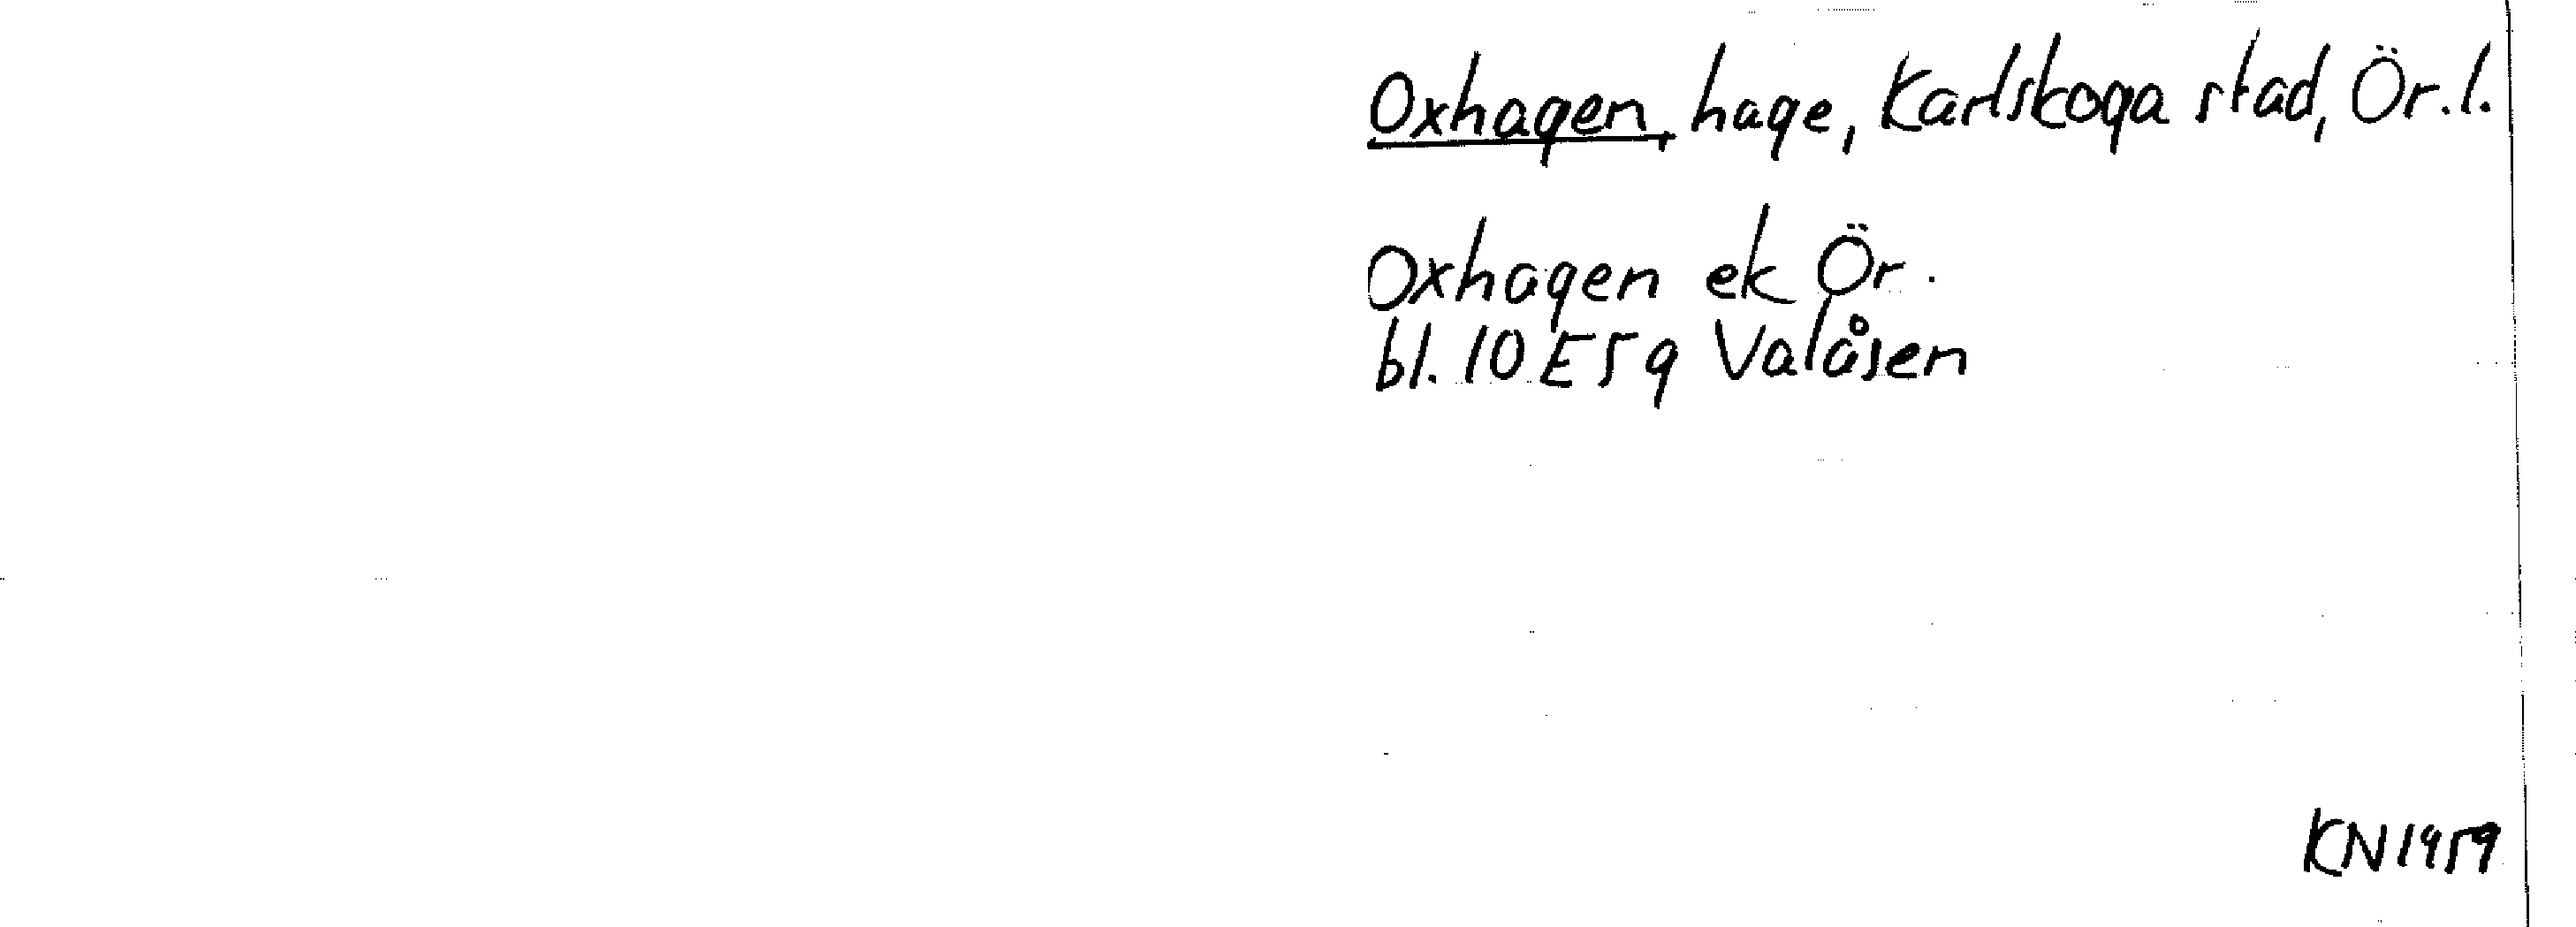 Oxhagen, hage, Karlskoga stad, Ör. l.
Oxhagen ek Ör.
bl. 10 E 5 g Valåsen
KN 1959